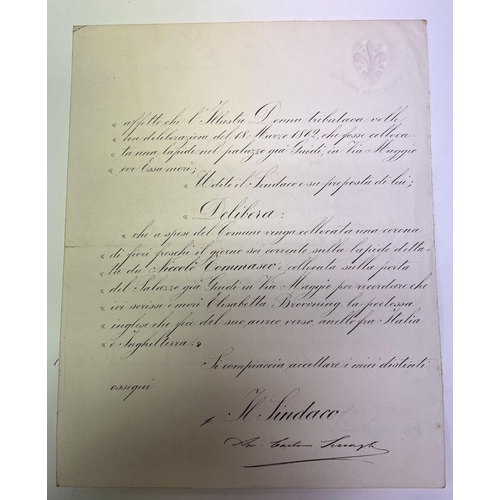 « affetto, che l'Illustre Donna tributava, volle
« con deliberazione del 18 Marzo 1862, che fosse colloca-
« ta una lapide nel palazzo già Guidi, in Via Maggio
« ove Essa morì;
« Udito il Sindaco e su proposta di lui;
« Delibera:
« che a spese del Comune venga collocata una corona
di fiori freschi il giorno sei corrente, sulla lapide detta-
ta da Niccolò Tommaseo e collocata sulla porta
del Palazzo già Guidi in Via Maggio per ricordare che
ivi scrisse e morì Elisabetta Browning, la poetessa
inglese che fece del suo aureo verso, anello fra Italia
e Inghilterra. »
Si compiaccia accettare i miei distinti
ossequi
Il Sindaco